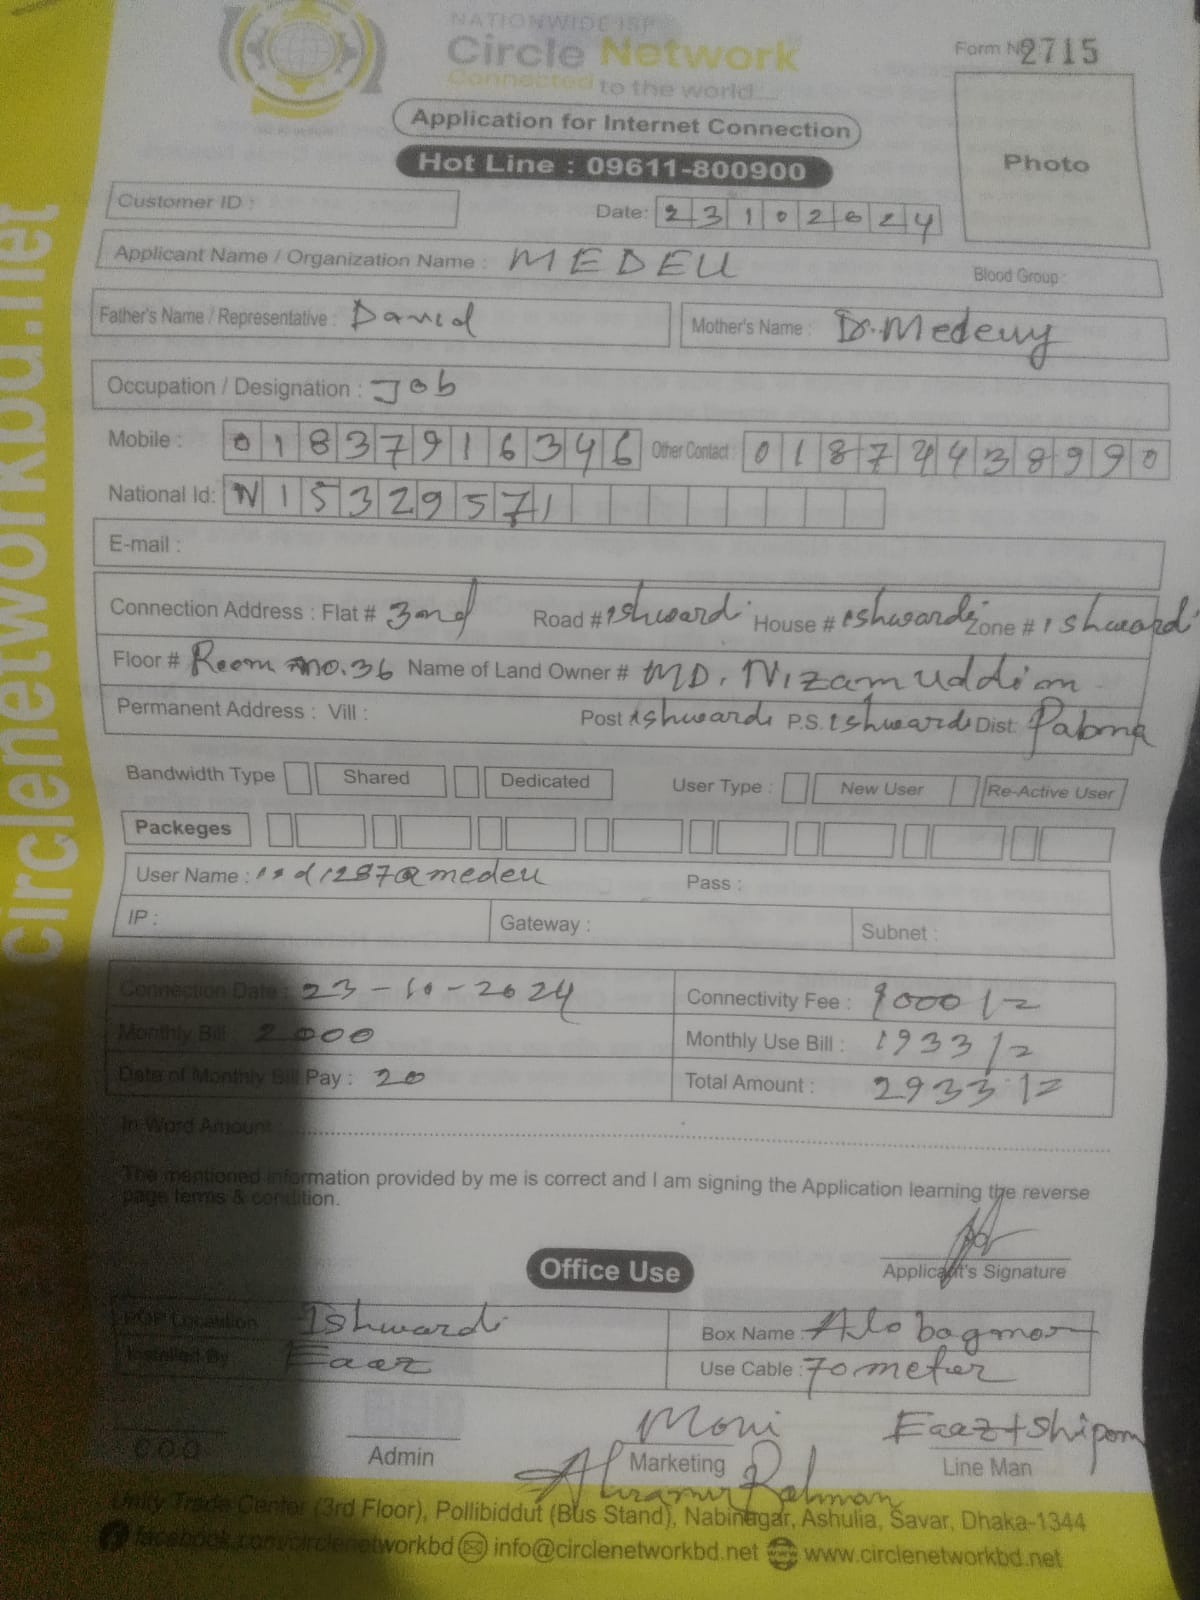 NATIONWIDE ISP
Circle Network
Connected to the world...
Form No 2715
Application for Internet Connection
Hot Line : 09611-800900
Photo
Customer ID :
Date: 23102024
Applicant Name / Organization Name : MEDEU
Blood Group :
Father's Name / Representative : David
Mother's Name : Dr. Medeuy
Occupation / Designation : Job
Mobile : 01837916346 Other Contact : 01874438990
National Id: N15329571
E-mail :
Connection Address : Flat # 3rd Road # ishwardi House # ishwardi Zone # ishwardi
Floor # Room no. 36 Name of Land Owner # MD. Nizam uddin
Permanent Address : Vill : Post ishwardi P.S. ishwardi Dist: Pabna
Bandwidth Type Shared Dedicated User Type : New User Re-Active User
Packeges
User Name : @medeu Pass :
IP : Gateway : Subnet :
Connection Date : 23-10-2024 Connectivity Fee : 1000/=
Monthly Bill : 2000 Monthly Use Bill : 1933/=
Date of Monthly Bill Pay : 20 Total Amount : 2933/=
In Word Amount :
The mentioned information provided by me is correct and I am signing the Application learning the reverse
page terms & condition.
Applicant's Signature
Office Use
POP Location Ishwardi Box Name : Alobagmor
Installed By Eaaz Use Cable : 70 meter
Moni Eaaz+Shipon
C O O Admin Marketing Line Man
Rahman
Unity Trade Center (3rd Floor), Pollibiddut (Bus Stand), Nabinagar, Ashulia, Savar, Dhaka-1344
facebook.com/circlenetworkbd info@circlenetworkbd.net www.circlenetworkbd.net
www.circlenetworkbd.net